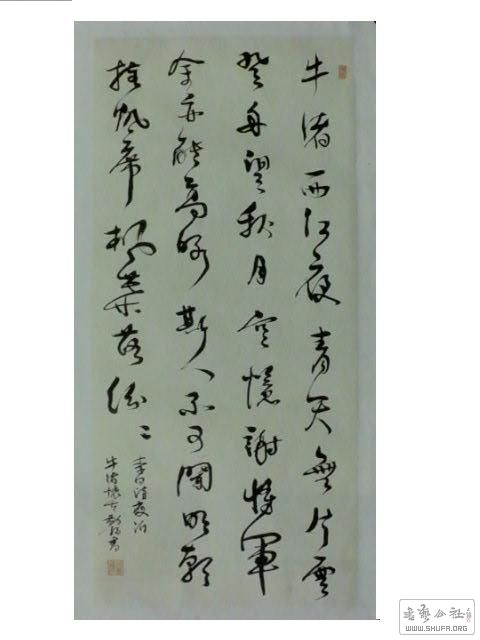 牛渚西江夜青天無片雲
登舟望秋月空憶謝將軍
余亦能高詠斯人不可聞明朝
挂帆席楓葉落紛〻
李白詩夜泊
牛渚懷古
书艺公社
WWW.SHUFA.ORG